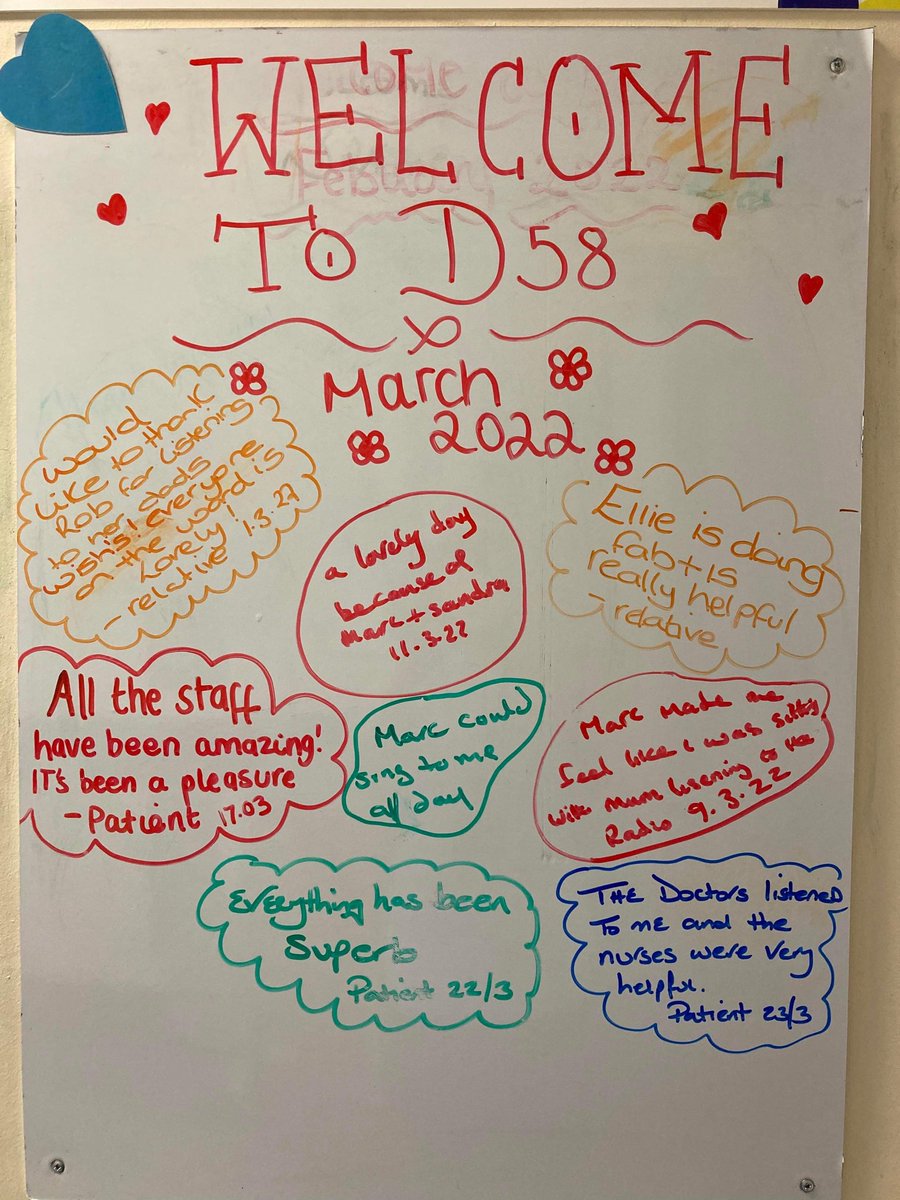 WELCOME
To D58
March
2022
would
like to thank
Rob for listening
to my dads
wishs! everyone
on the ward is
lovely!
- relative 1.3.27
a lovely day
because of
Marc + Sandra
11.3.22
Ellie is doing
fab + is
really helpful
- relative
All the staff
have been amazing!
IT's been a pleasure
- Patient 17.03
Marc could
sing to me
all day
Marc made me
feel like i was
with mum listening to the
Radio 9.3.22
Everything has been
Superb
Patient 22/3
THE Doctors listened
To me and the
nurses were very
helpful.
Patient 23/3